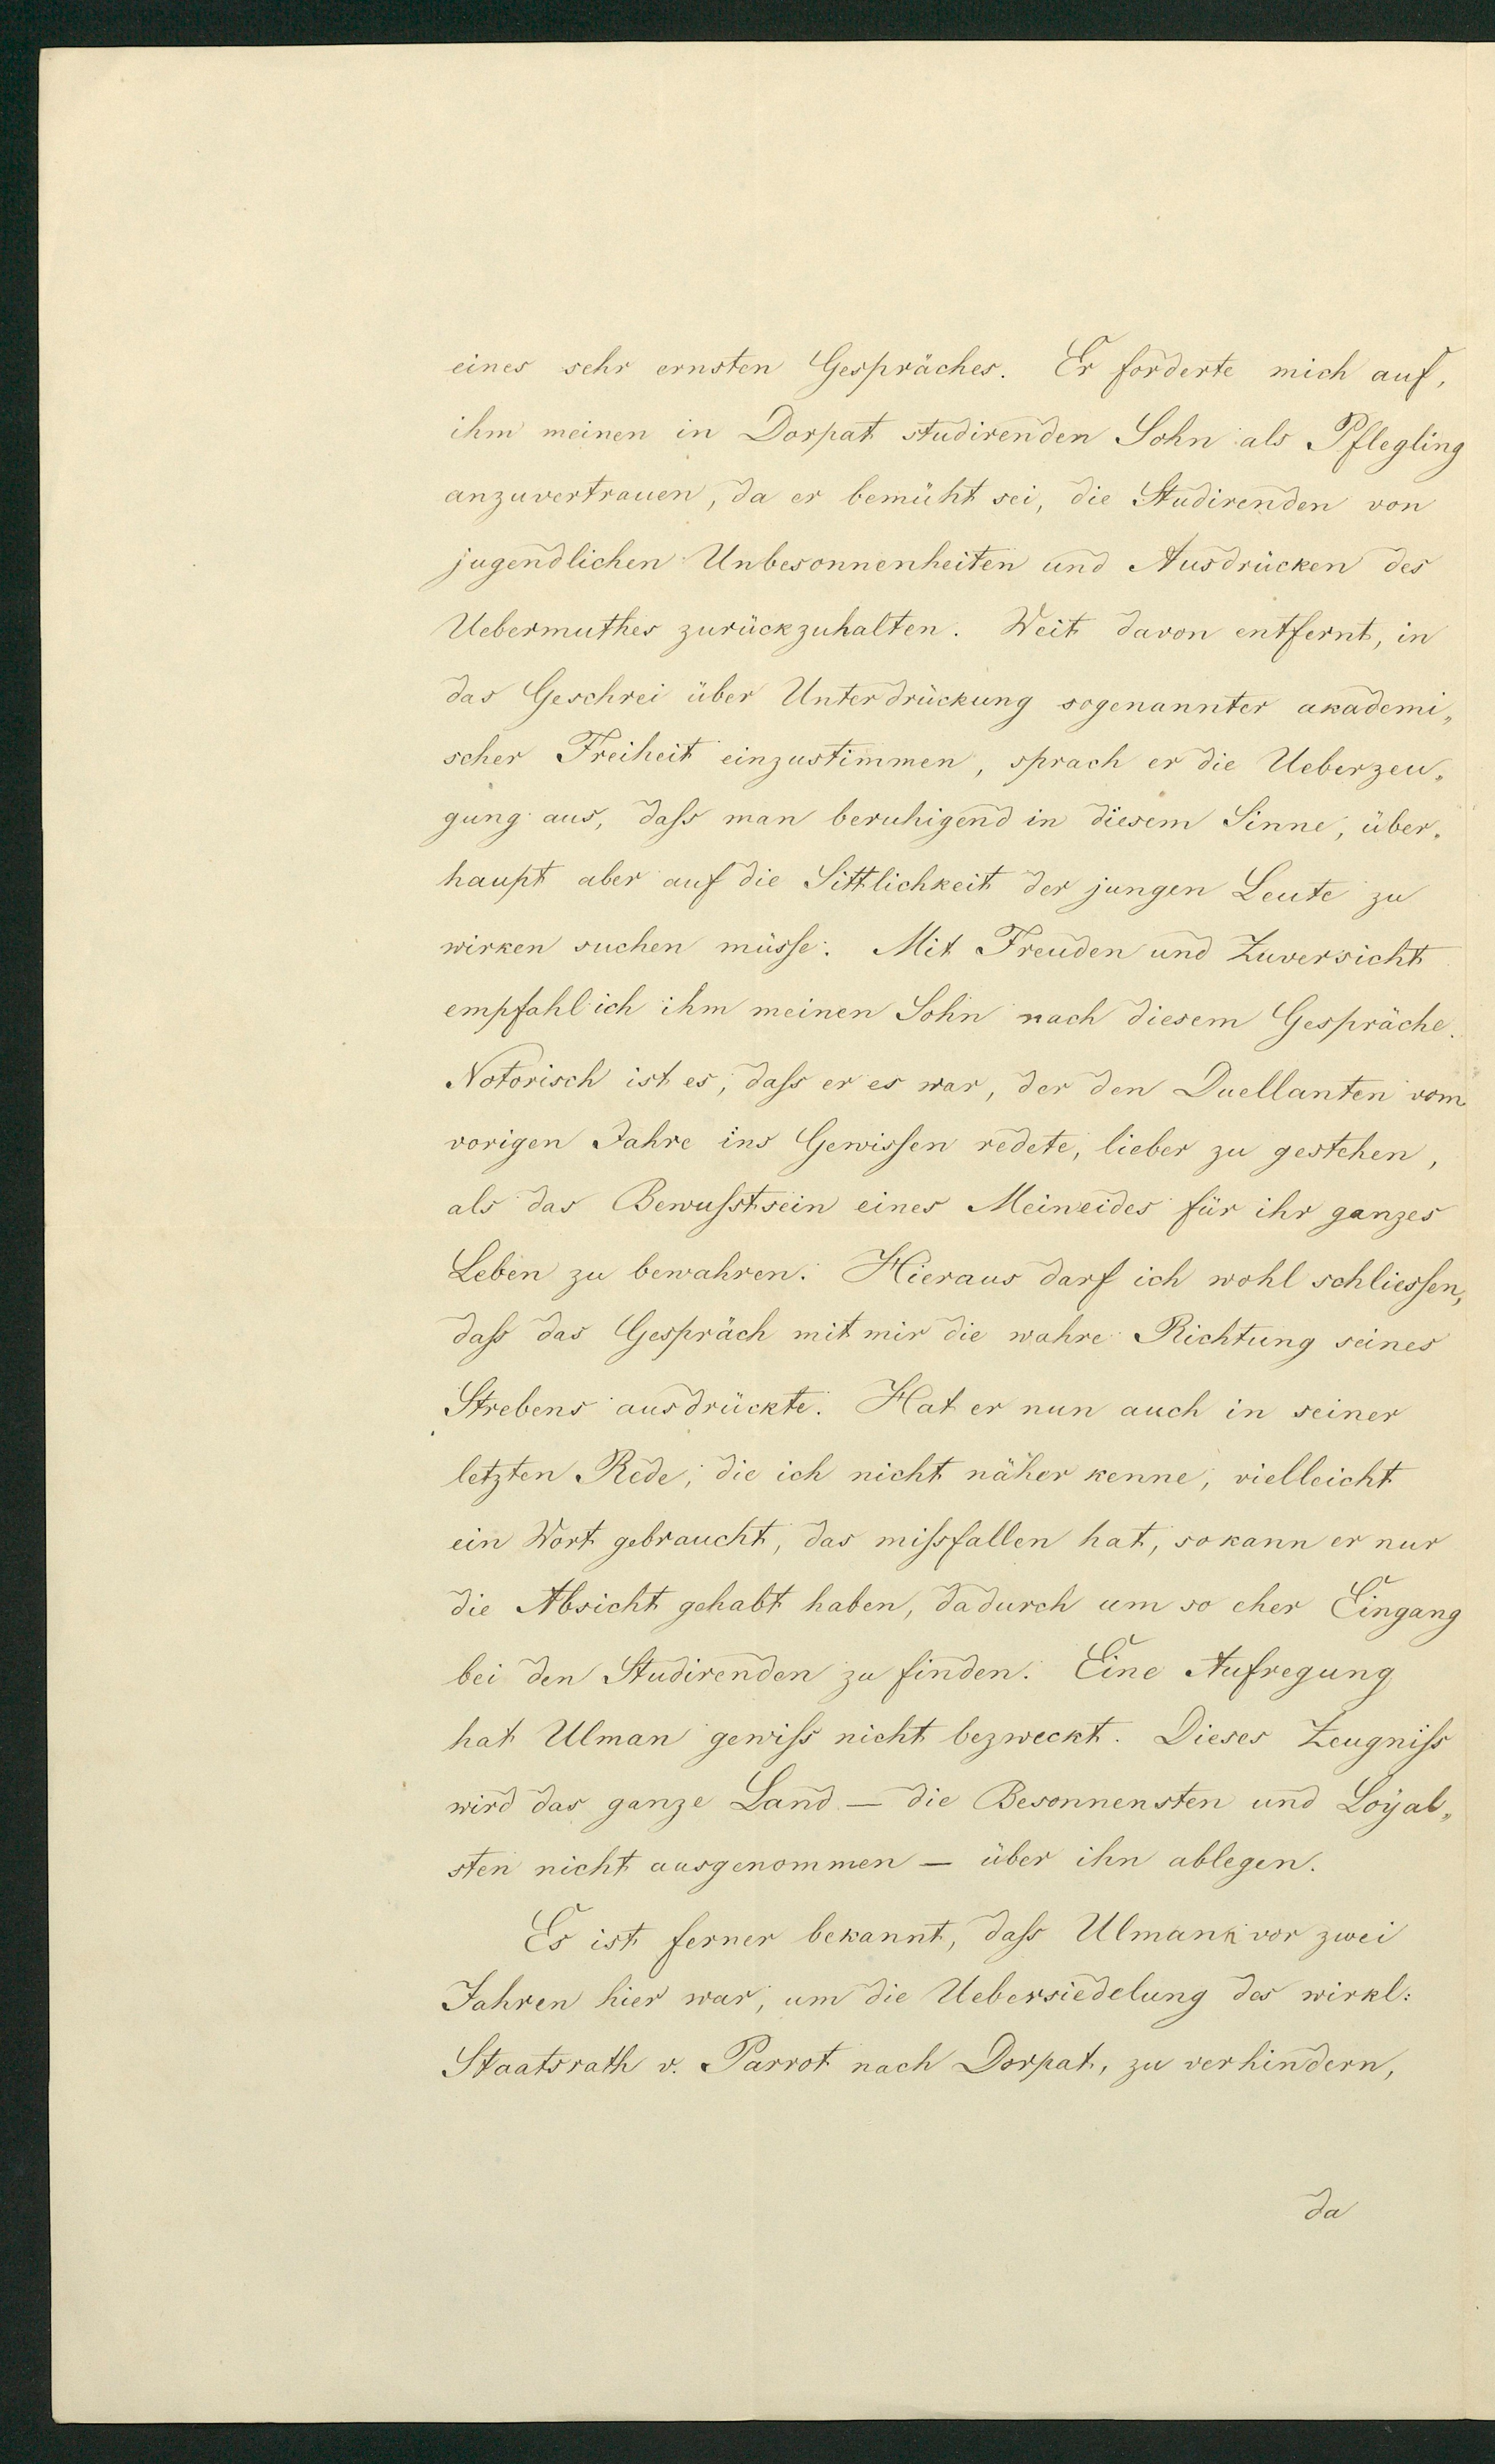 eines sehr ernsten Gespräches. Er forderte mich auf,
ihm meinen in Dorpat studirenden Sohn als Pflegling
anzuvertrauen, da er bemüht sei, die Studirenden von
jugendlichen Unbesonnenheiten und Ausdrücken des
Uebermuthes zurückzuhalten. Weit davon entfernt, in
das Geschrei über Unterdrückung sogenannter akademi„
scher Freiheit einzustimmen, sprach er die Ueberzeu„
gung aus, daſs man beruhigend in diesem Sinne, über„
haupt aber auf die Sittlichkeit der jungen Leute zu
wirken suchen müſse. Mit Freuden und Zuversicht
empfahl ich ihm meinen Sohn nach diesem Gespräche.
Notorisch ist es, daſs er es war, der den Duellanten vom
vorigen Jahre ins Gewiſsen redete, lieber zu gestehen,
als das Bewuſstsein eines Meineides für ihr ganzes
Leben zu bewahren. Hieraus darf ich wohl schlieſsen,
daſs das Gespräch mit mir die wahre Richtung seines
Strebens ausdrückte. Hat er nun auch in seiner
letzten Rede, die ich nicht näher kenne, vielleicht
ein Wort gebraucht, das miſsfallen hat, so kann er nur
die Absicht gehabt haben, dadurch um so eher Eingang
bei den Studirenden zu finden. Eine Aufregung
hat Ulman gewiſs nicht bezweckt. Dieses Zeugniſs
wird das ganze Land — die Besonnensten und Loyal„
sten nicht ausgenommen — über ihn ablegen.
Es ist ferner bekannt, daſs Ulmann vor zwei
Jahren hier war, um die Uebersiedelung des wirkl:
Staatsrath v. Parrot nach Dorpat, zu verhindern,
da